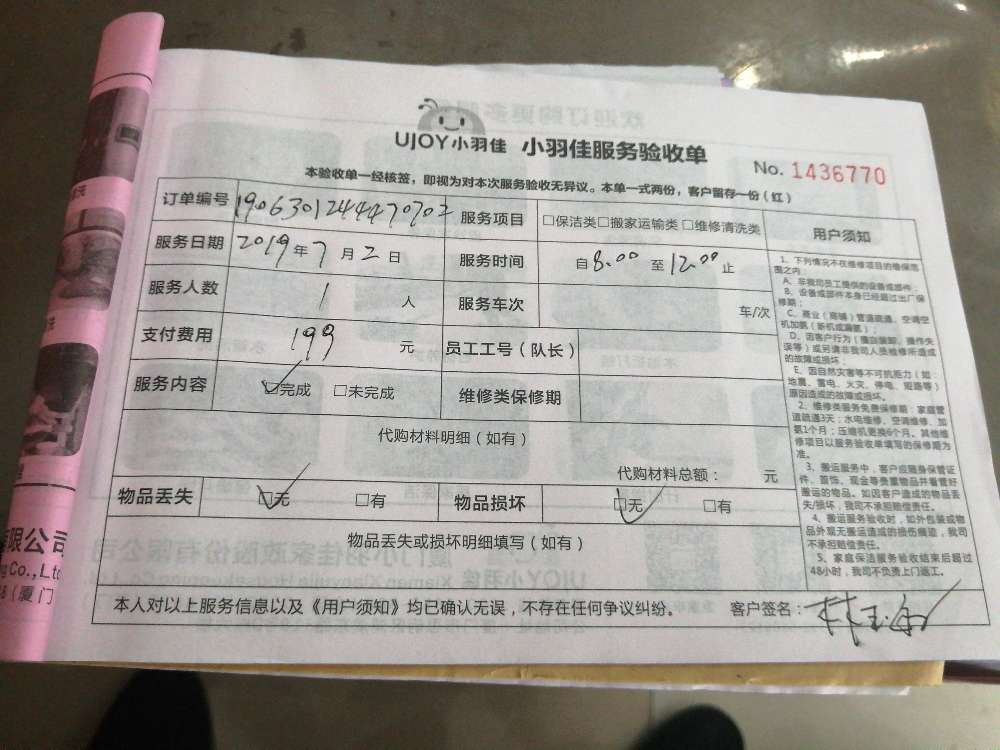 UJOY小羽佳 小羽佳服务验收单
No. 1436770
本验收单一经核签，即视为对本次服务验收无异议。本单一式两份，客户留存一份（红）
订单编号 1906301244470702 服务项目 □保洁类□搬家运输类 □维修清洗类
服务日期 2019年7月2日 服务时间 自8:00至12:00止
服务人数 1 人 服务车次 车/次
支付费用 199 元 员工工号（队长）
服务内容 ☑完成 □未完成 维修类保修期
代购材料明细（如有）
代购材料总额： 元
物品丢失 ☑无 □有 物品损坏 ☑无 □有
物品丢失或损坏明细填写（如有）
用户须知
1、下列情况不在维修项目的维保范
围之内
A、非我司员工提供的设备或部件；
B、设备或部件本身已经超过出厂保
修期；
C、商业（商铺）管道疏通、空调空
机加氨（新机或漏氨）；
D、因客户行为（擅自装卸、操作失
误等）或另请非我司人员维修所造成
的故障或损坏；
E、因自然灾害等不可抗拒力（如：
地震、雷电、火灾、停电、短路等）
原因造成的故障或损坏。
2、维修类服务免费保修期：家庭管
道疏通3天；水电维修、空调维修、加
氨1个月；压缩机更换6个月。其他维
修项目以服务验收单填写的保修期为
准。
3、搬运服务中，客户应随身保管证
件、首饰、现金等贵重物品并看管好
搬运的物品。如因客户造成的物品丢
失/损坏，我司不承担赔偿责任。
4、搬运服务验收时，如外包装或物
品外观无搬运造成的损伤痕迹，我司
不承担赔偿责任。
5、家庭保洁服务验收结束后超过
48小时，我司不负责上门返工。
本人对以上服务信息以及《用户须知》均已确认无误，不存在任何争议纠纷。 客户签名：
有限公司
g Co.,Lt
（厦门